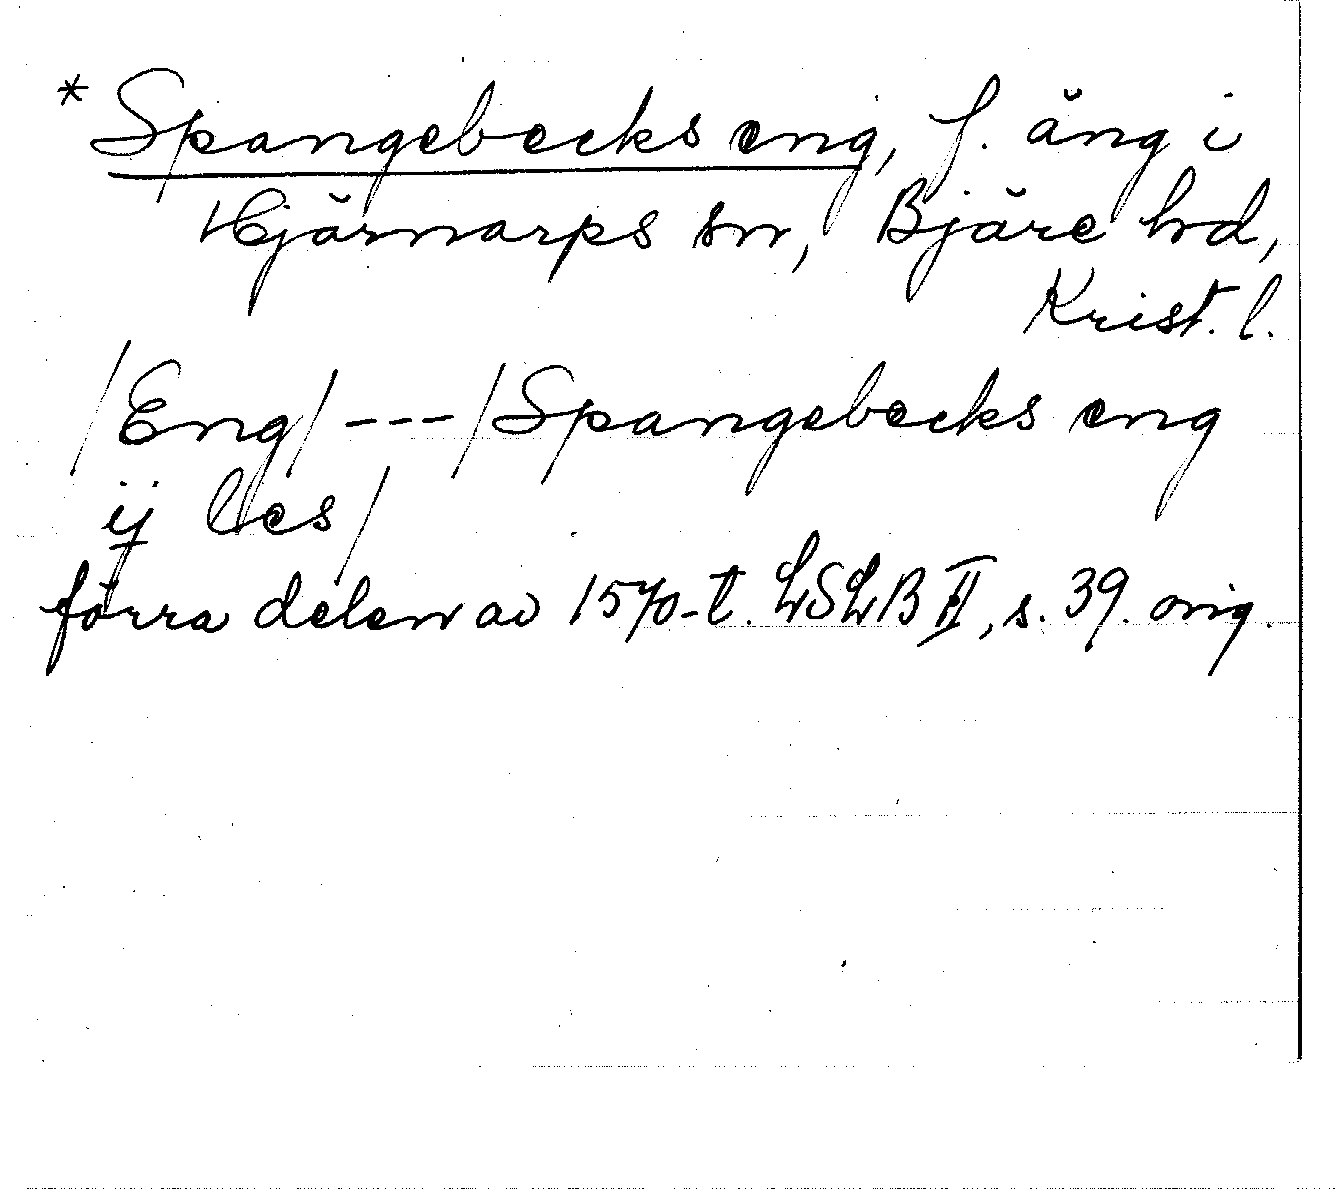 * Spangebecks eng, f. äng i
Hjärnarps sn, Bjäre hd,
Krist. l.
/Eng/ --- /Spangebecks eng
ij les/
förra delen av 1570-t. LSLB II, s. 39. orig.